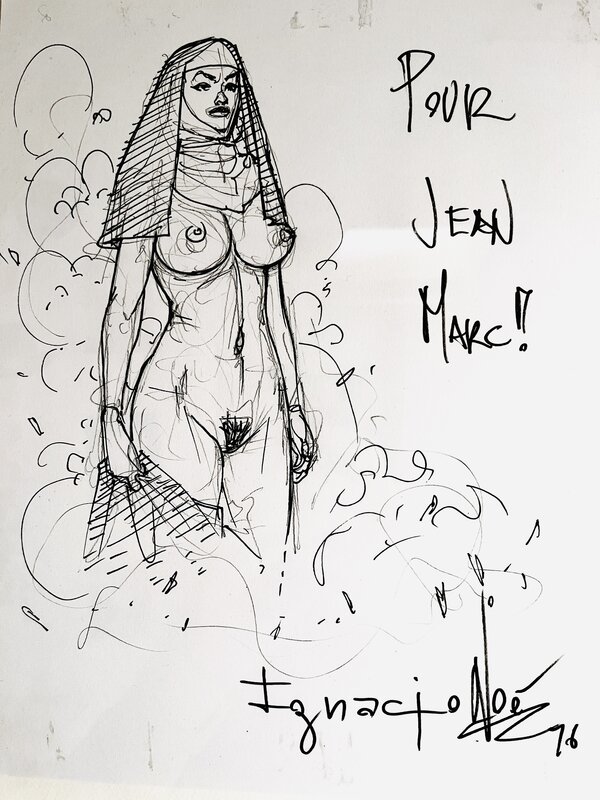 POUR
JEAN
MARC!!
Ignacio Noé
16